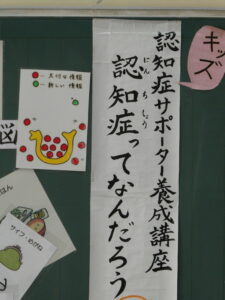 キッズ
認知症サポーター養成講座
にんちしょう
認知症ってなんだろう
大切な情報
新しい情報
脳
ごはん
サイフ・めがね